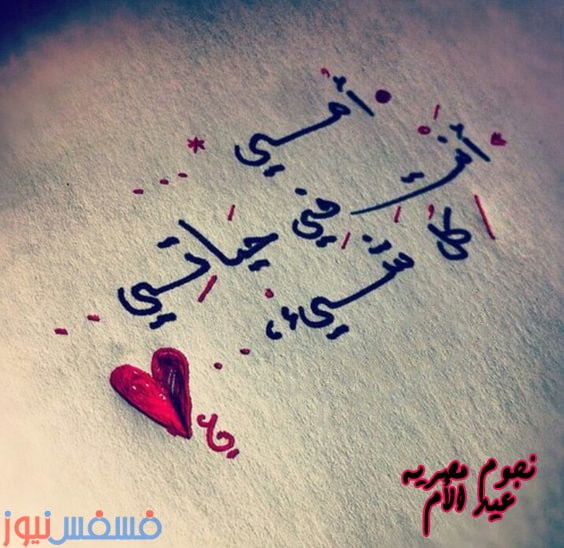 أمي
كل
في حياتي
شيء
نجوم مصريه
عيد الأم
فسفس نيوز